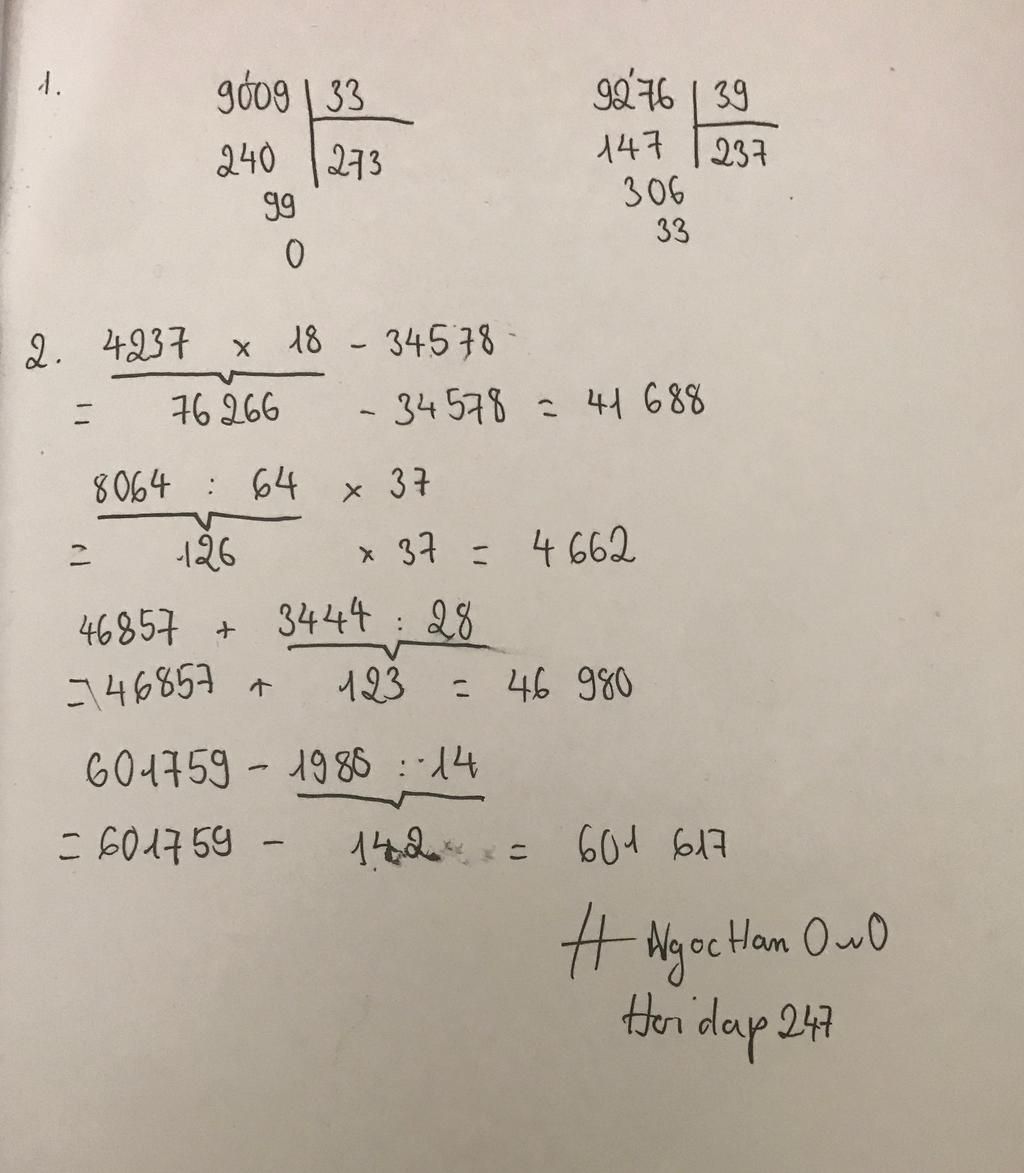 1.
9009 33 9276 39
240 273 147 237
99 306
0 33
2. 4237 x 18 - 34578
= 76 266 - 34578 = 41 688
8064 : 64 x 37
= 126 x 37 = 4 662
46857 + 3444 : 28
= 46857 + 123 = 46 980
601759 - 1986 : 14
= 601759 - 142 = 601 617
# NgocHan OwO
Hoidap 247